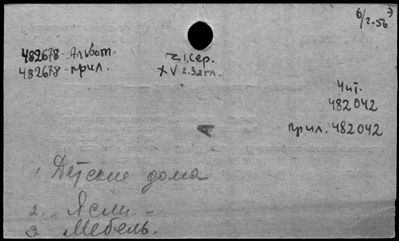 6/2-56 Э
482678-Альбом.
482678-прил.
1 сер.
XV г. 3 гл.
Чит.
482042
прил. 482042
1. Детские дома
2. Ясли -
3. Мебель.